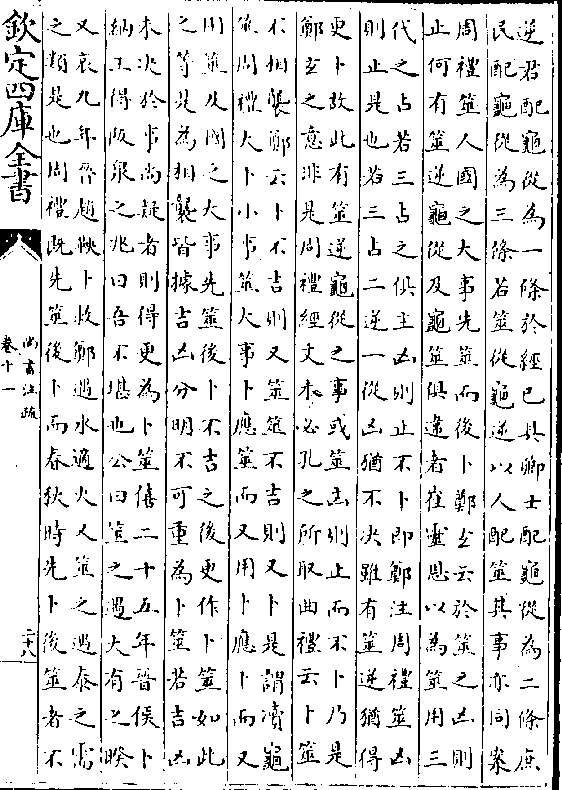 逆君配龜從為一條於經已具卿士配龜從為二條庶
民配龜從為三條若筮從龜逆以人配筮其事亦同案
周禮筮人國之大事先筮而後卜鄭玄云於筮之凶則
止何有筮逆龜從及龜筮俱違者崔靈恩以為筮用三
代之占若三占之俱主凶則止不卜即鄭注周禮筮凶
則止是也若三占二逆一從凶猶不決雖有筮逆猶得
更卜故此有筮逆龜從之事或筮凶則止而不卜乃是
鄭玄之意非是周禮經文未必孔之所取曲禮云卜筮
不相襲鄭云卜不吉則又筮筮不吉則又卜是謂凟龜
筮周禮大卜小事筮大事卜應筮而又用卜應卜而又
用筮及國之大事先筮後卜不吉之後更作卜筮如此
之等是為相襲皆據吉凶分明不可重為卜筮若吉凶
未決於事尚疑者則得更為卜筮僖二十五年晉侯卜
納王得阪泉之兆曰吾不堪也公曰筮之遇大有之睽
又哀九年晉趙鞅卜救鄭遇水適火又筮之遇泰之需
之類是也周禮既先筮後卜而春秋時先卜後筮者不
欽定四庫全書
尚書注疏
卷十一
二十八